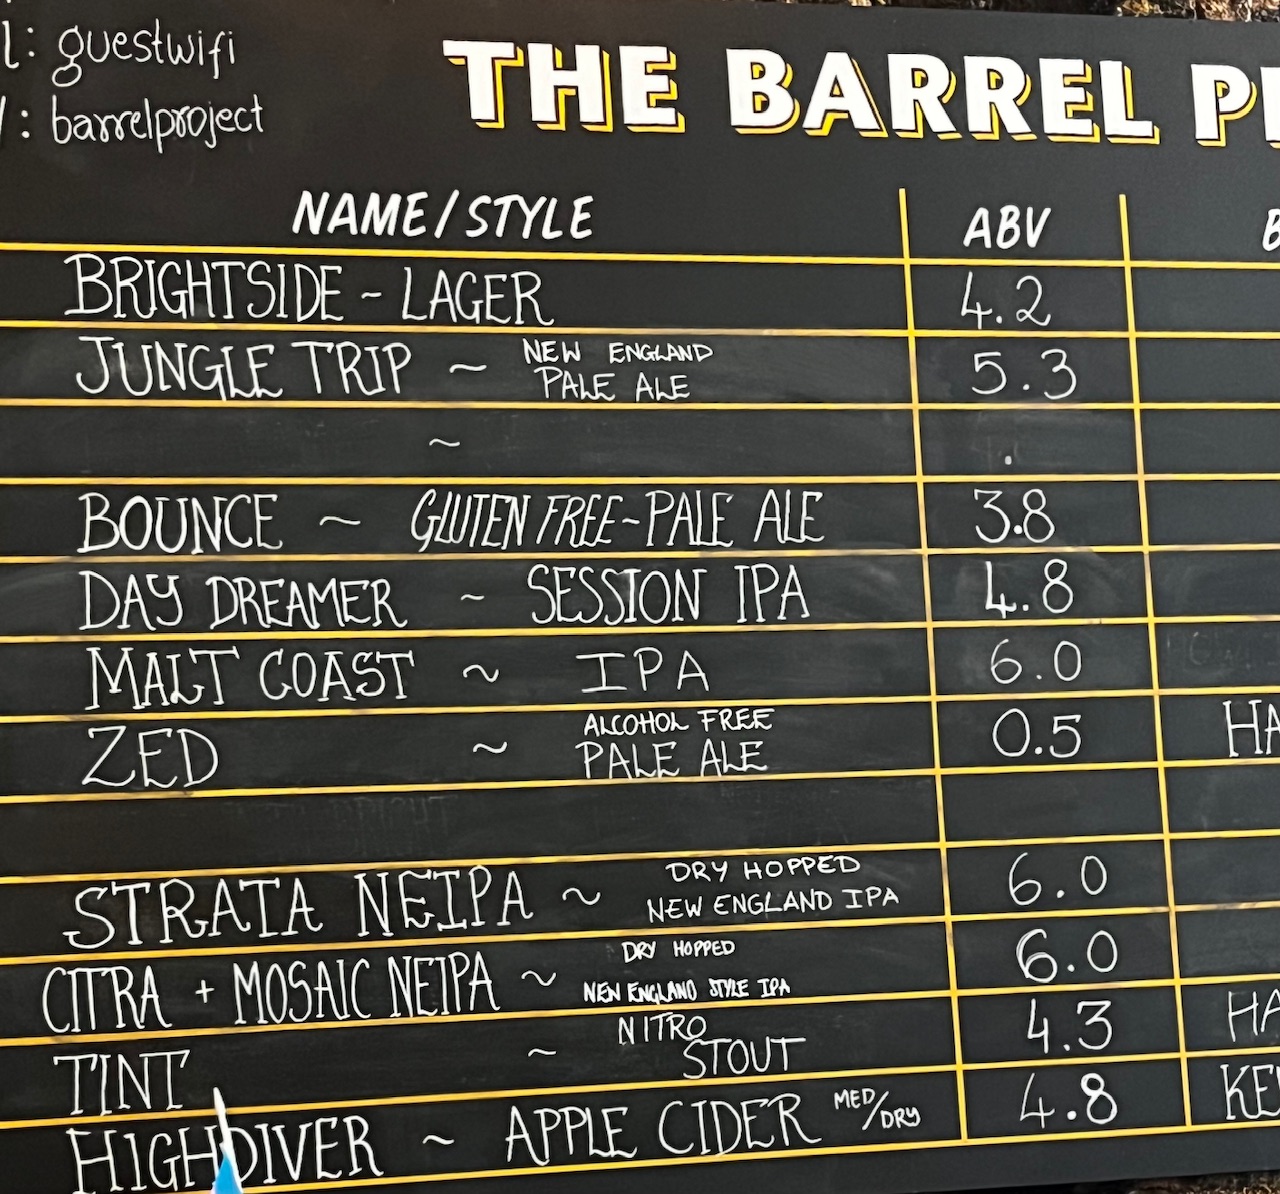 l: guestwifi
: barrelproject
THE BARREL
NAME/STYLE ABV
BRIGHTSIDE ~ LAGER 4.2
JUNGLE TRIP ~ NEW ENGLAND
PALE ALE 5.3
~ .
BOUNCE ~ GLUTEN FREE ~ PALE ALE 3.8
DAY DREAMER ~ SESSION IPA 4.8
MALT COAST ~ IPA 6.0
ZED ~ ALCOHOL FREE
PALE ALE 0.5 HA
STRATA NEIPA ~ DRY HOPPED
NEW ENGLAND IPA 6.0
CITRA + MOSAIC NEIPA ~ DRY HOPPED
NEW ENGLAND STYLE IPA 6.0
TINT ~ NITRO
STOUT 4.3 HA
HIGHDIVER ~ APPLE CIDER MED/DRY 4.8 KE